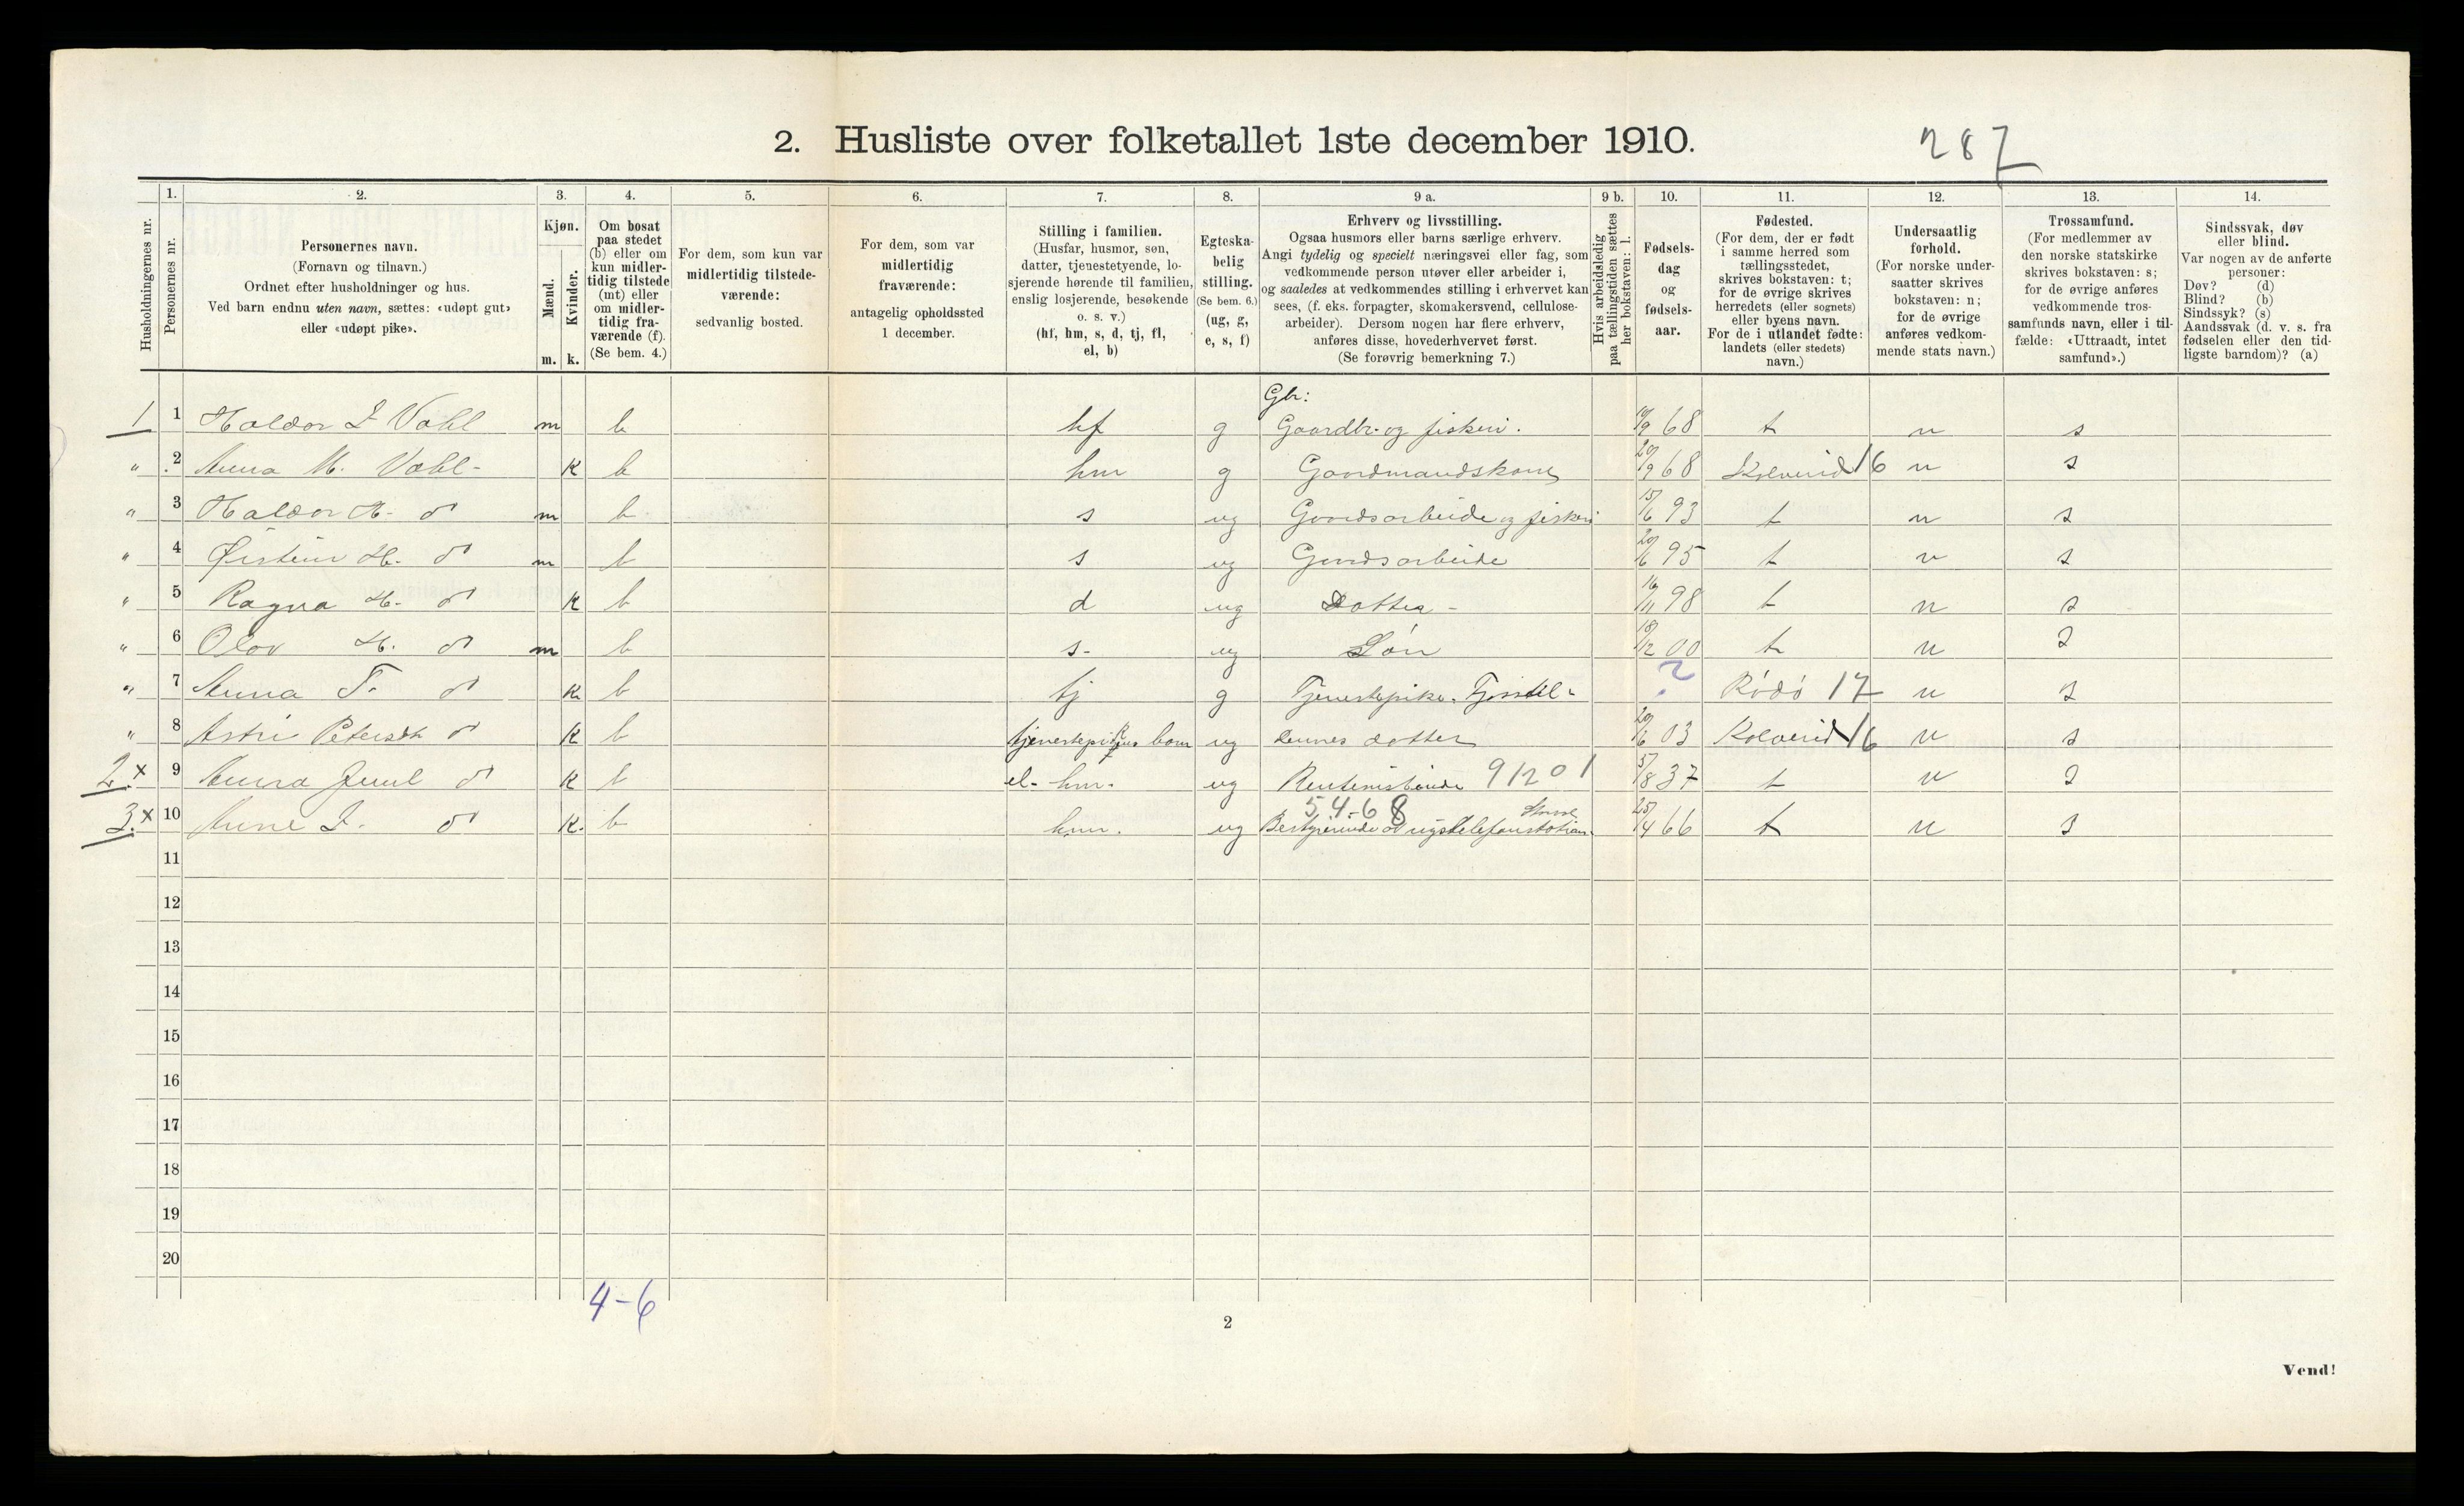 2. Husliste over folketallet 1ste december 1910.
287
Husholdningernes nr.
1.
Personernes nr.
2.
Personernes navn.
(Fornavn og tilnavn.)
Ordnet efter husholdninger og hus.
Ved barn endnu uten navn, sættes: «udøpt gut»
eller «udøpt pike».
3.
Kjøn.
Mænd.
Kvinder.
m. k.
4.
Om bosat
paa stedet
(b) eller om
kun midler-
tidig tilstede
(mt) eller
om midler-
tidig fra-
værende (f).
(Se bem. 4.)
5.
For dem, som kun var
midlertidig tilstede-
værende:
sedvanlig bosted.
6.
For dem, som var
midlertidig
fraværende:
antagelig opholdssted
1 december.
7.
Stilling i familien.
(Husfar, husmor, søn,
datter, tjenestetyende, lo-
sjerende hørende til familien,
enslig losjerende, besøkende
o. s. v.)
(hf, hm, s, d, tj, fl,
el, b)
8.
Egteska-
belig
stilling.
(Se bem. 6.)
(ug, g,
e, s, f)
9 a.
Erhverv og livsstilling.
Ogsaa husmors eller barns særlige erhverv.
Angi tydelig og specielt næringsvei eller fag, som
vedkommende person utøver eller arbeider i,
og saaledes at vedkommendes stilling i erhvervet kan
sees, (f. eks. forpagter, skomakersvend, cellulose-
arbeider). Dersom nogen har flere erhverv,
anføres disse, hovederhvervet først.
(Se forøvrig bemerkning 7.)
9 b.
Hvis arbeidsledig
paa tællingstiden sættes
her bokstaven: l.
10.
Fødsels-
dag
og
fødsels-
aar.
11.
Fødested.
(For dem, der er født
i samme herred som
tællingsstedet,
skrives bokstaven: t;
for de øvrige skrives
herredets (eller sognets)
eller byens navn.
For de i utlandet fødte:
landets (eller stedets)
navn.)
12.
Undersaatlig
forhold.
(For norske under-
saatter skrives
bokstaven: n;
for de øvrige
anføres vedkom-
mende stats navn.)
13.
Trossamfund.
(For medlemmer av
den norske statskirke
skrives bokstaven: s;
for de øvrige anføres
vedkommende tros-
samfunds navn, eller i til-
fælde: «Uttraadt, intet
samfund».)
14.
Sindssvak, døv
eller blind.
Var nogen av de anførte
personer:
Døv? (d)
Blind? (b)
Sindssyk? (s)
Aandssvak (d. v. s. fra
fødselen eller den tid-
ligste barndom)? (a)
Gbr:
1 1 Haldor I Vahl m b hf g Gaardbr. og fiskeri. 68 t n s
" 2 Anna M. Vahl - K b hm g Gaardmandskone 20/9 68 Kolvereid 16 n s
" 3 Haldor H. do m b s ug Gaardsarbeide og fiskeri 15/6 93 t n s
" 4 Øistein H. do m b s ug Gaardsarbeide 20/6 95 t n s
" 5 Ragna H. do K b d ug Datter - 16/11 98 t n s
" 6 Olav H. do m b s - ug Søn 18/12 00 t n s
" 7 Anna T. do K b tj g Tjenestepike. ? Rødø 17 n s
" 8 Astri do K b tjenestepikens barn ug dennes datter 20/6 03 Kolvereid 16 n s
2 x 9 Anna Juul do K b el- hm. ug Rentenistinde 91201 37 t n s
3. x 10 Anne I. do K. b hm. ug 54-68 Bestyrerinde av rigstelefonstation. 25/4 66 t n s
11
12
13
14
15
16
17
18
19
20
4-6
2
Vend!